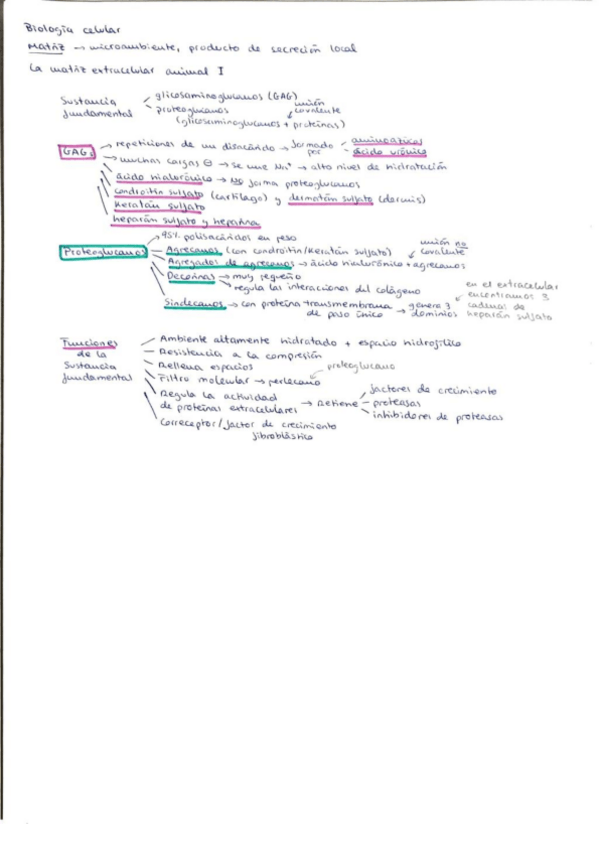 Biología celular
Matriz → microambiente, producto de secreción local
La matriz extracelular animal I
Sustancia fundamental
glicosaminoglucanos (GAG)
proteoglucanos
unión covalente
(glicosaminoglucanos + proteínas)
GAGs
→ repeticiones de un disacárido → formado por
aminoazúcar
ácido urónico
→ muchas cargas ⊖ → se une Na⁺ → alto nivel de hidratación
ácido hialurónico → NO forma proteoglucanos
condroitín sulfato (cartílago) y dermatán sulfato (dermis)
keratán sulfato
heparán sulfato y heparina
Proteoglucanos
95% polisacáridos en peso
Agrecanos (con condroitín/keratán sulfato)
unión no covalente
Agregados de agrecanos → ácido hialurónico + agrecanos
Decorinas → muy pequeño
regula las interacciones del colágeno
Sindecanos → con proteína transmembrana de paso único → genera 3 dominios
en el extracelular encontramos 3 cadenas de heparán sulfato
Funciones de la sustancia fundamental
Ambiente altamente hidratado + espacio hidrofílico
Resistencia a la compresión
Rellena espacios
proteoglucano
Filtro molecular → perlecano
Regula la actividad de proteínas extracelulares → Retiene
factores de crecimiento
proteasas
inhibidores de proteasas
Correceptor/factor de crecimiento fibroblástico